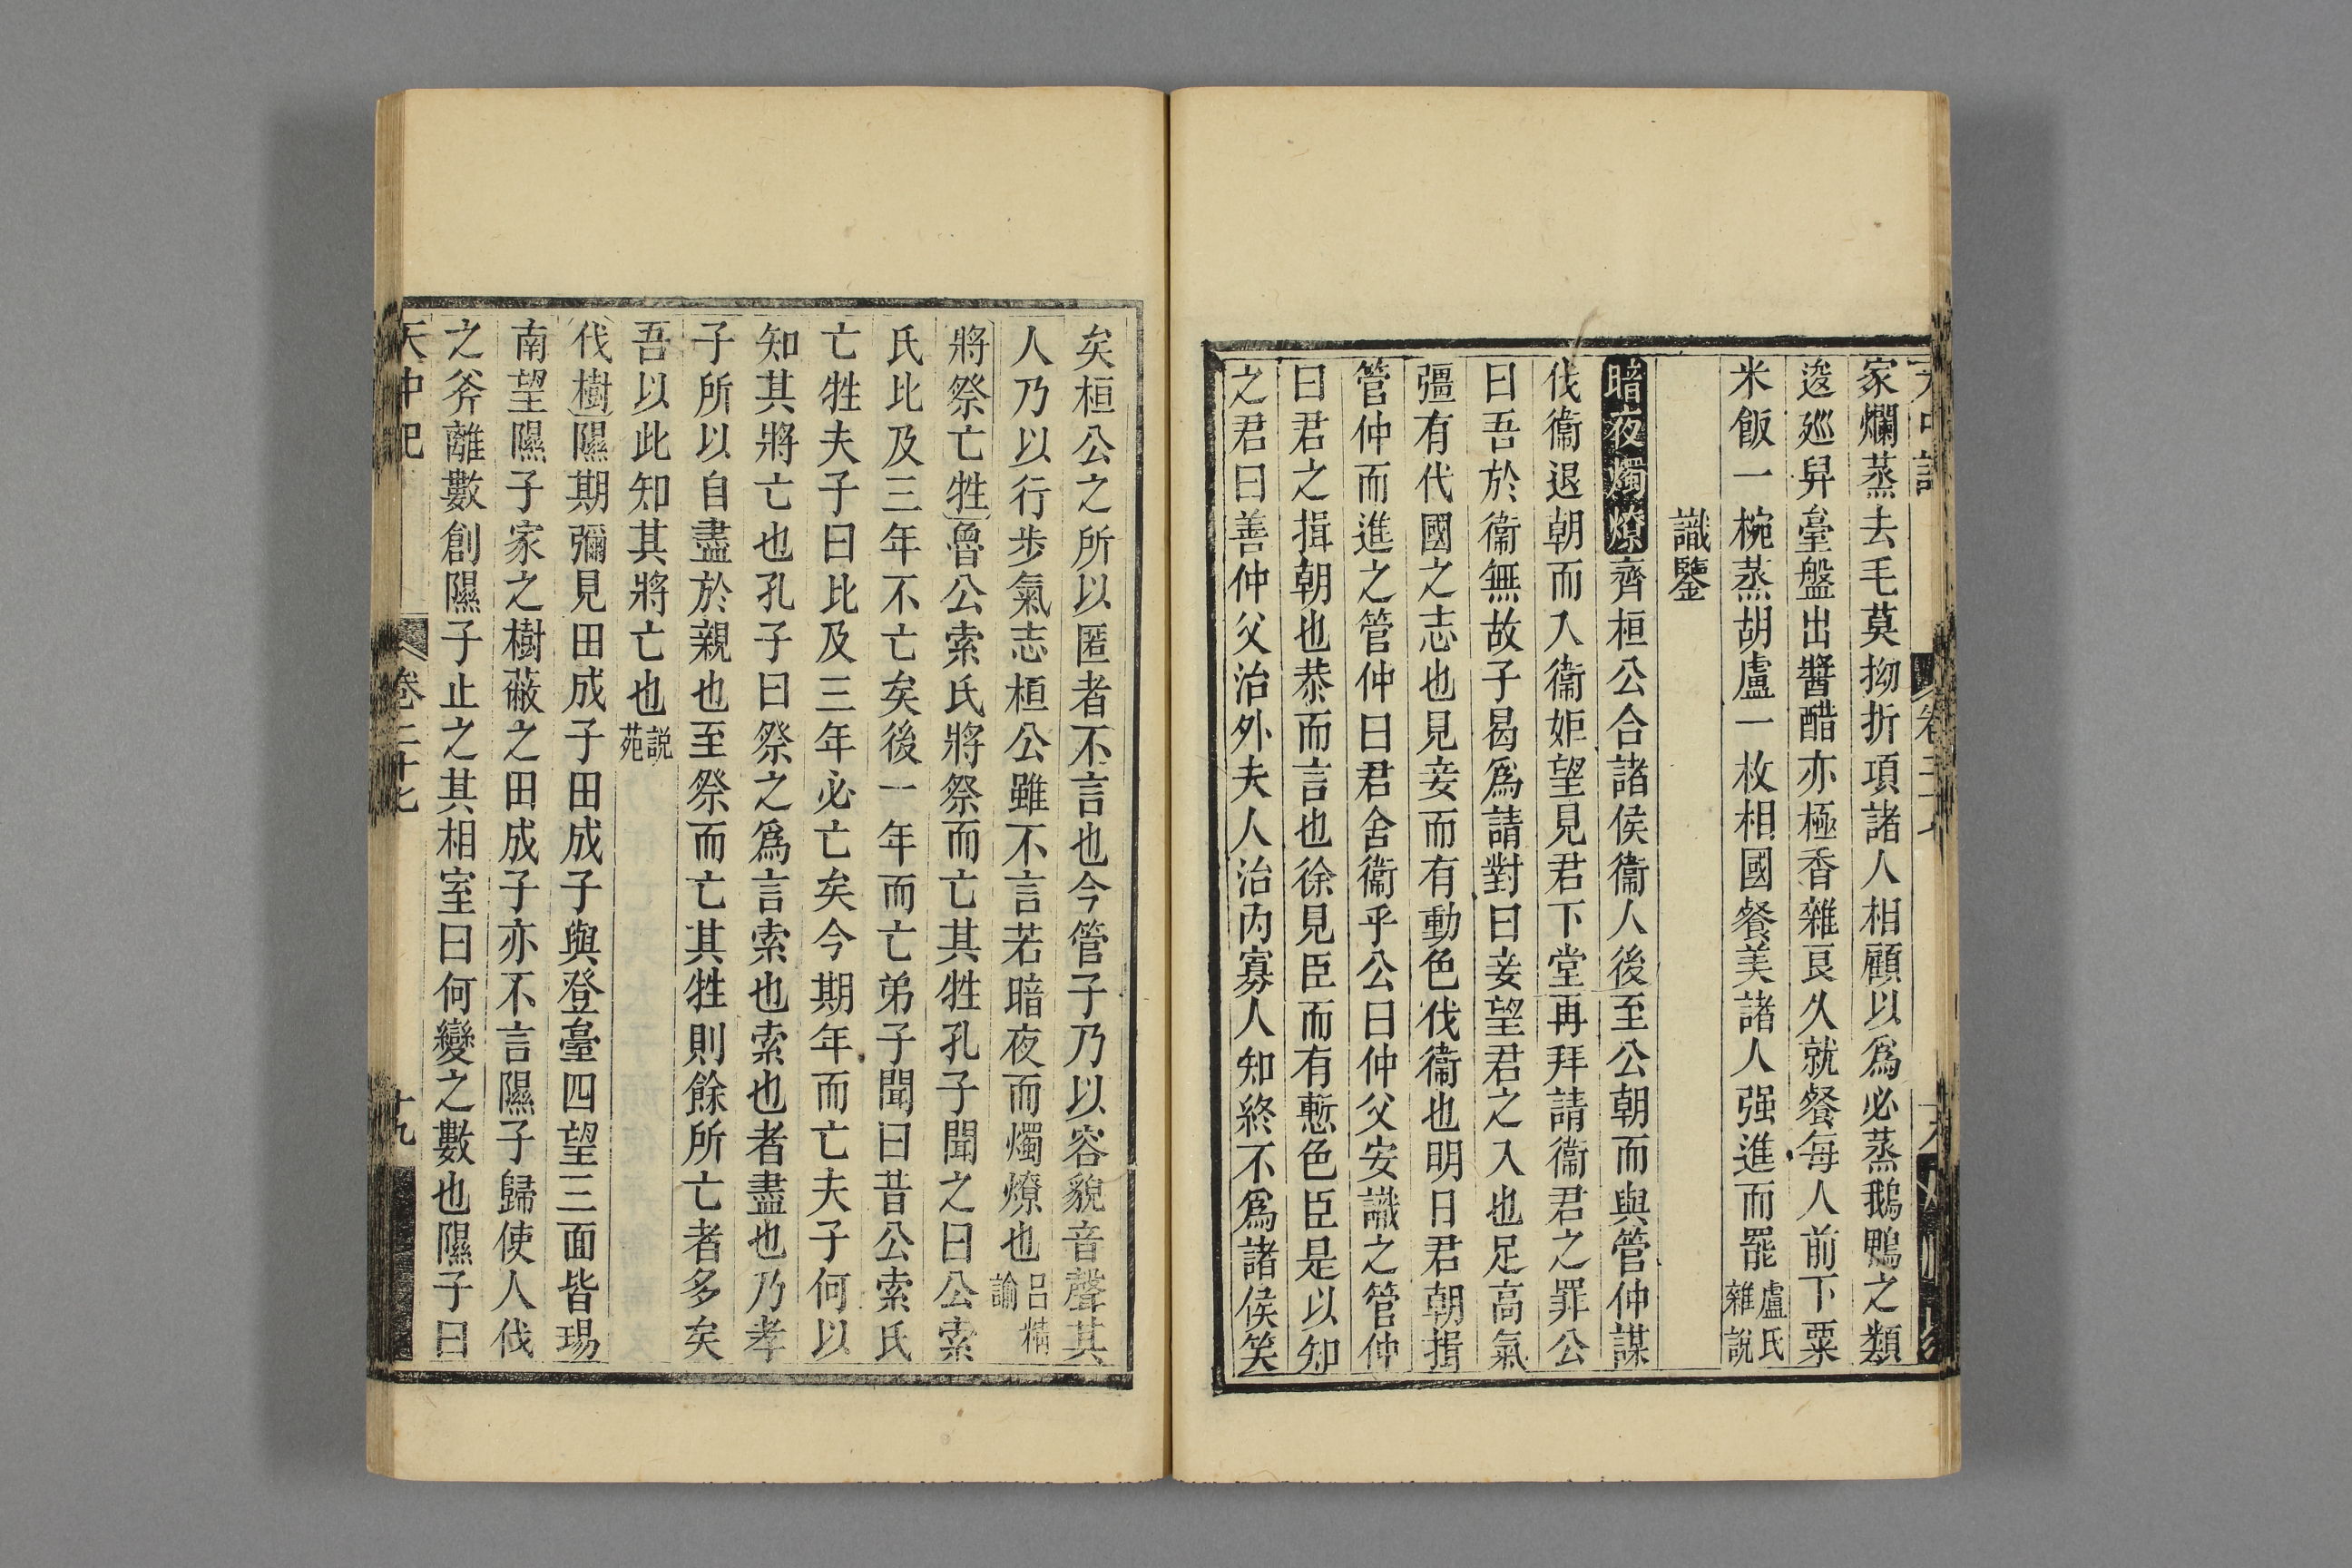 家爛蒸去毛莫拗折項諸人相顧以爲必蒸鵝鴨之類
逡廵舁臺盤出醬醋亦極香雜良久就餐每人前下粟
米飯一椀蒸胡盧一枚相國餐美諸人强進而罷盧氏雜說
識鑒
暗夜燭燎齊桓公合諸侯衞人後至公朝而與管仲謀
伐衞退朝而入衞姬望見君下堂再拜請衞君之罪公
曰吾於衞無故子曷爲請對曰妾望君之入也足高氣
彊有代國之志也見妾而有動色伐衞也明日君朝揖
管仲而進之管仲曰君舍衞乎公曰仲父安識之管仲
曰君之揖朝也恭而言也徐見臣而有慙色臣是以知
之君曰善仲父治外夫人治內寡人知終不爲諸侯笑
矣桓公之所以匿者不言也今管子乃以容貌音聲其
人乃以行步氣志桓公雖不言若暗夜而燭燎也呂精諭
將祭亡牲魯公索氏將祭而亡其牲孔子聞之曰公索
氏比及三年不亡矣後一年而亡弟子聞曰昔公索氏
亡牲夫子曰比及三年必亡矣今期年而亡夫子何以
知其將亡也孔子曰祭之爲言索也索也者盡也乃孝
子所以自盡於親也至祭而亡其牲則餘所亡者多矣
吾以此知其將亡也說苑
伐樹隰期彌見田成子田成子與登臺四望三面皆𭹹
南望隰子家之樹蔽之田成子亦不言隰子歸使人伐
之斧離數創隰子止之其相室曰何變之數也隰子曰
天中記 卷二十七 十九